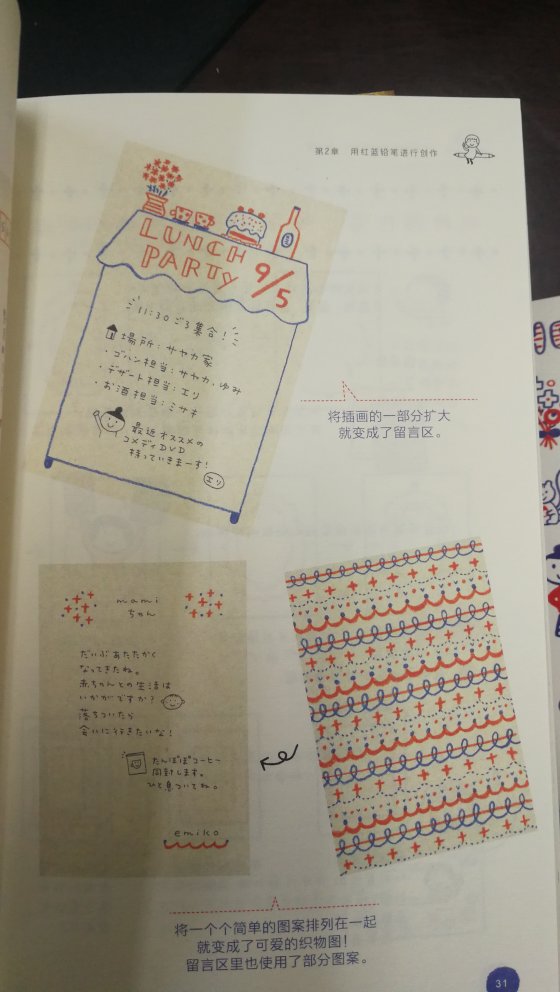 第2章 用红蓝铅笔进行创作
LUNCH
PARTY 9/5
11:30ごろ集合!
場所:サヤカ家
・ゴハン担当:サヤカ、ゆみ
・デザート担当:エリ
・お酒担当:ミサキ
最近オススメの
コメディDVD
持っていきまーす!
エリ
将插画的一部分扩大
就变成了留言区。
mami
ちゃん
だいぶあたたかく
なってきたね。
赤ちゃんとの生活は
いかがですか?
落ちついたら
会いに行きたいな!
たんぽぽコーヒー
同封します。
ひと息ついてね。
emiko
将一个个简单的图案排列在一起
就变成了可爱的织物图!
留言区里也使用了部分图案。
31